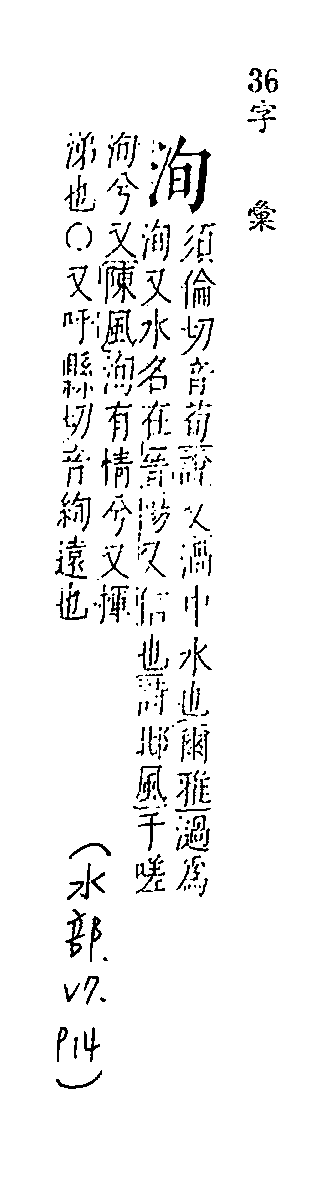 36字彙
洵
須倫切音荀說文渦中水也爾雅過爲
洵又水名在晉陽又信也詩邶風于嗟
洵兮又陳風洵有情兮又揮
涕也○又呼縣切音絢遠也
(水部.v7.P14)